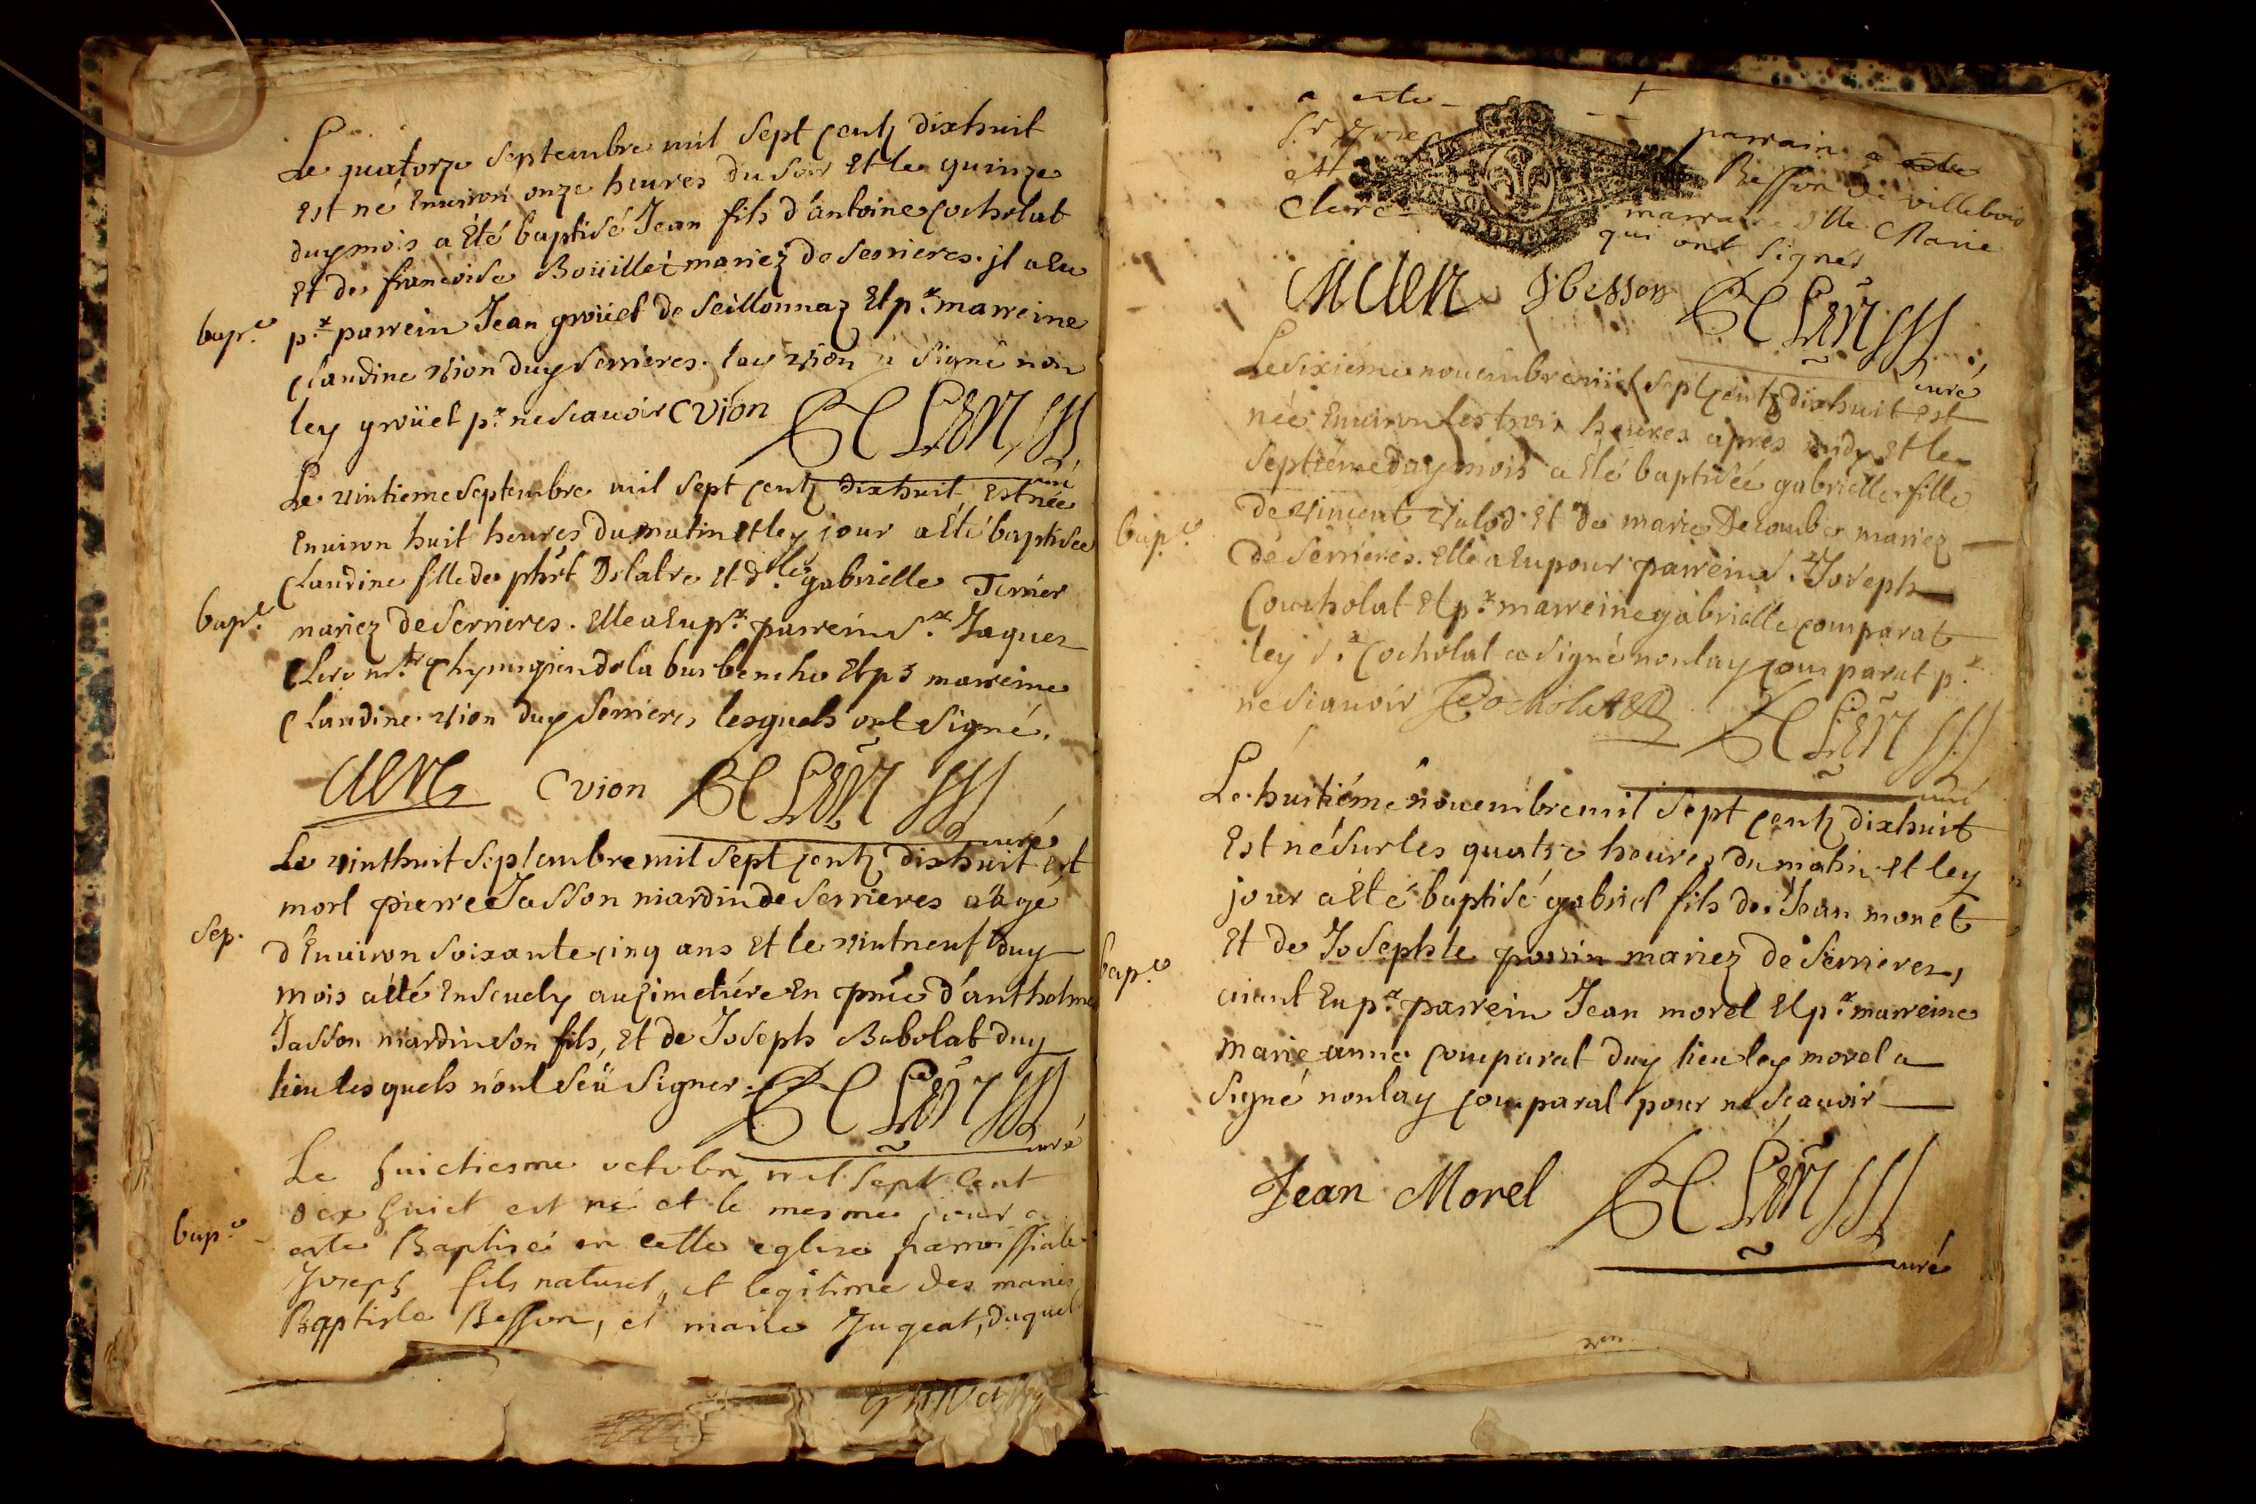 Le quatorze septembre mil sept centz dixhuit
Est né Environ onze heures du soir Et le quinze
duy mois a Eté baptisé Jean fils d'antoine Cocholat
Et de francoise Boüillet mariez de serrieres. jl a Eu
bap.e
p.r parrein Jean groüet de Seillonnaz Et p.r marreine
Claudine vion duy serrieres. lay vion a signé non
ley groüet p.r ne scauoir C vion
curé
Le vintieme septembre mil sept centz dixhuit Est née
Environ huit heures du matin Et ley jour a Eté baptisée
Claudine fille de phért Delatre Et d.lle gabrielle Terrier
bap.e
mariez de Serrieres. Elle a Eu p.r parrein s.r Jaques
Clerc m.tre Chyrurgien de la burbenche Et p.r marreine
Claudine vion duy serrieres lesquels ont signé.
clerc C vion
curé
Le vinthuit septembre mil sept centz dixhuit Est
mort pierre Jasson mardin de Serrieres aagé
sep.
d'Environ soixante cinq ans Et le vintneuf duy
mois a Eté Enseuely au Cimetiére En pnce d'anthelme
Jasson mardin son fils, Et de Joseph Babolat duy
lieu lesquels n'ont sçü signer.
curé
Le huictiesme octobre mil sept cent
dix huict est né et le mesme jour a
bap.e
esté Baptisé en cette eglise parroissiale
Joseph fils naturel, et legitime des maries
Baptiste Besson, et marie Jugeat, duquel
a esté parrain a esté
S.r Besson de villebois
et marraine d.lle Marie
Clerc qui ont signés
M clerc J besson
curé
Le sixiéme nouembre mil sept centz dixhuit est
née Environ les trois heures apres midy Et le
septiéme duy mois a Eté baptisée gabrielle fille
bap.e
de vincent valod Et de marie Decombe mariez
de serrieres. Elle a Eu pour parrein s.r Joseph
Cocholat Et p.r marreine gabrielle comparat
ley s.r Cocholat a signé non lay comparat p.r
ne scauoir J Cocholat
curé
Le huitiéme nouembre mil sept centz dixhuit
Est né sur les quatre heures du matin Et ley
jour a Eté baptisé gabriel fils de Jean monet
Et de Josephte perrin mariez de Serrieres,
bap.e
aiant Eu p.r parrein Jean morel Et p.r marreine
marie anne comparat duy lieu ley morel a
signé non lay comparat pour ne scauoir
Jean Morel
curé